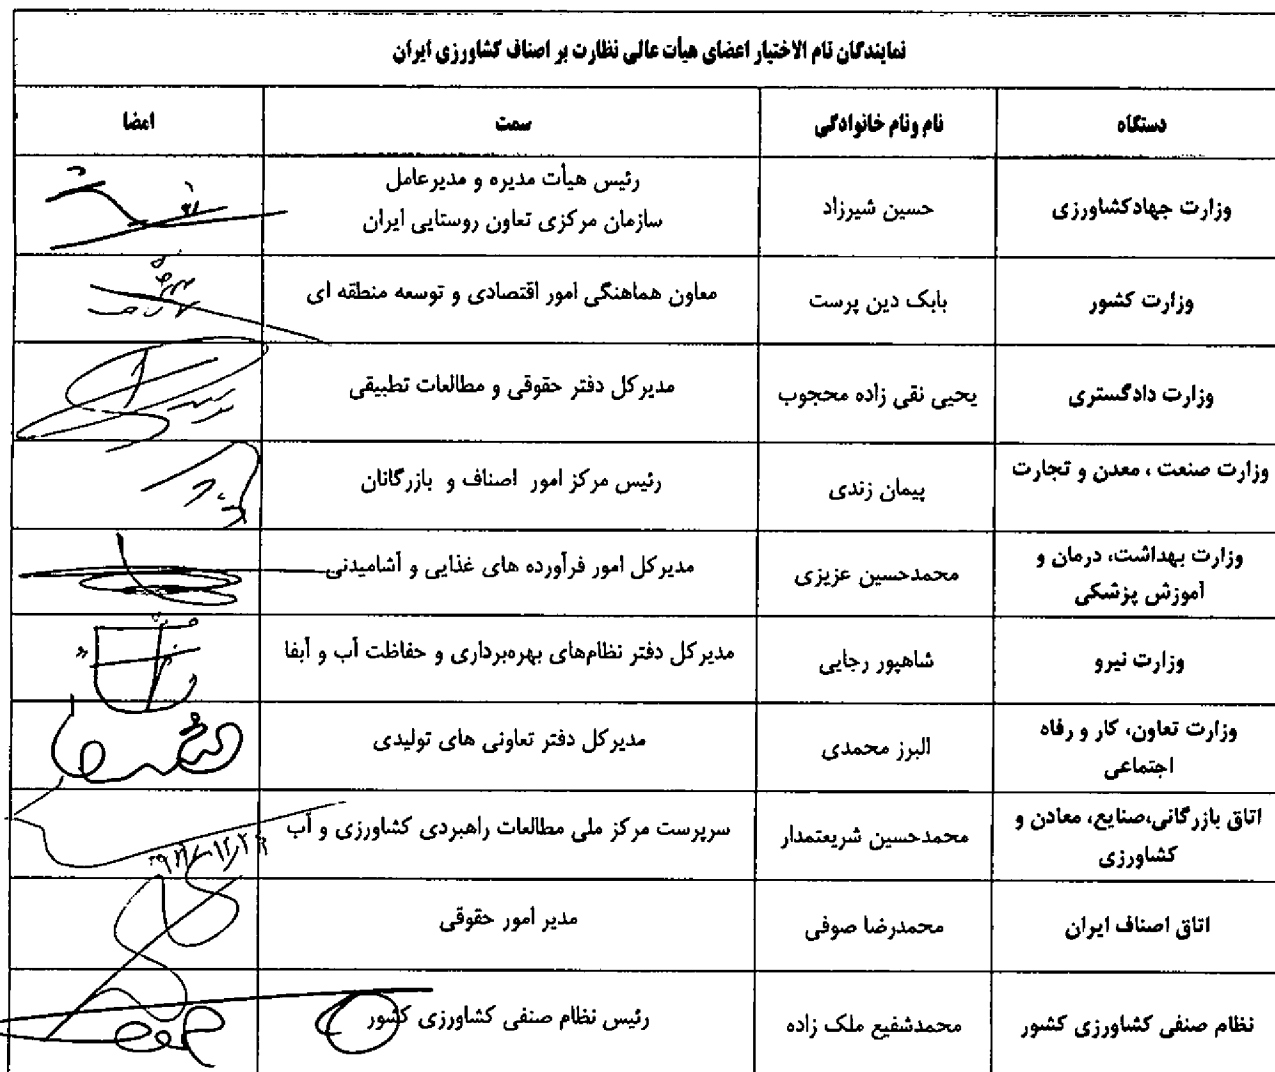 نمایندگان تام الاختیار اعضای هیأت عالی نظارت بر اصناف کشاورزی ایران
دستگاه نام ونام خانوادگی سمت امضا
وزارت جهادکشاورزی حسین شیرزاد رئیس هیأت مدیره و مدیرعامل
سازمان مرکزی تعاون روستایی ایران
وزارت کشور بابک دین پرست معاون هماهنگی امور اقتصادی و توسعه منطقه ای
وزارت دادگستری یحیی نقی زاده محجوب مدیرکل دفتر حقوقی و مطالعات تطبیقی
وزارت صنعت ، معدن و تجارت پیمان زندی رئیس مرکز امور اصناف و بازرگانان
وزارت بهداشت، درمان و محمدحسین عزیزی مدیرکل امور فرآورده های غذایی و آشامیدنی
آموزش پزشکی
وزارت نیرو شاهپور رجایی مدیرکل دفتر نظام‌های بهره‌برداری و حفاظت آب و آبفا
وزارت تعاون، کار و رفاه البرز محمدی مدیرکل دفتر تعاونی های تولیدی
اجتماعی
اتاق بازرگانی،صنایع، معادن و محمدحسین شریعتمدار سرپرست مرکز ملی مطالعات راهبردی کشاورزی و آب
کشاورزی
اتاق اصناف ایران محمدرضا صوفی مدیر امور حقوقی
نظام صنفی کشاورزی کشور محمدشفیع ملک زاده رئیس نظام صنفی کشاورزی کشور